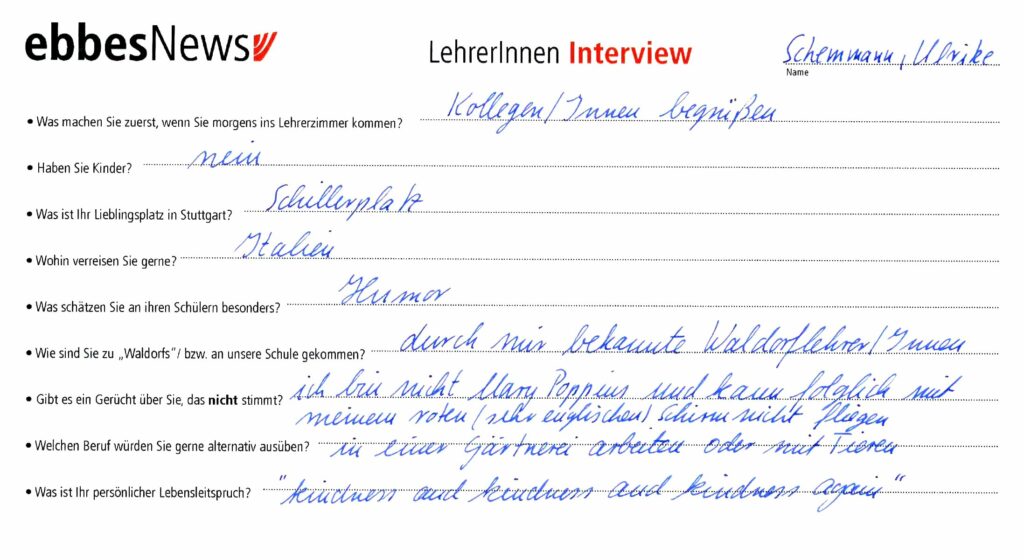 ebbesNews
LehrerInnen Interview
Schemmann, Ulrike
Name
• Was machen Sie zuerst, wenn Sie morgens ins Lehrerzimmer kommen? Kollegen/Innen begrüßen
• Haben Sie Kinder? nein
• Was ist Ihr Lieblingsplatz in Stuttgart? Schillerplatz
• Wohin verreisen Sie gerne? Italien
• Was schätzen Sie an ihren Schülern besonders? Humor
• Wie sind Sie zu „Waldorfs“/ bzw. an unsere Schule gekommen? durch mir bekannte Waldorflehrer/Innen
• Gibt es ein Gerücht über Sie, das nicht stimmt? ich bin nicht Mary Poppins und kann folglich mit
meinem roten (sehr englischen) Schirm nicht fliegen
• Welchen Beruf würden Sie gerne alternativ ausüben? in einer Gärtnerei arbeiten oder mit Tieren
• Was ist Ihr persönlicher Lebensleitspruch? "kindness and kindness and kindness again"